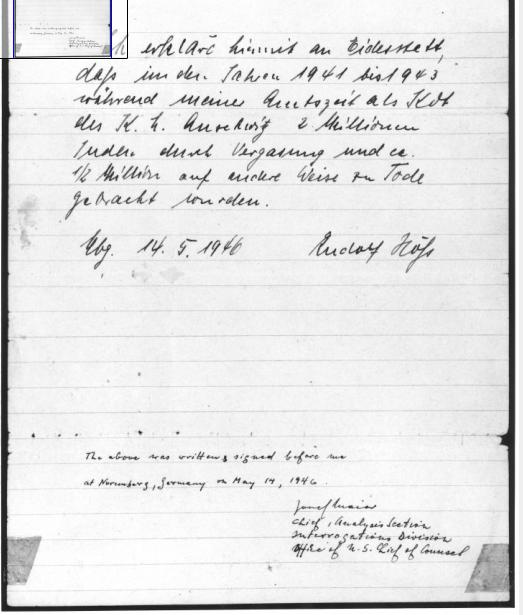 Ich erkläre hiermit an Eidesstatt,
daß in den Jahren 1941 bis 1943
während meiner Amtszeit als Kdt
des K. L. Auschwitz 2 Millionen
Juden durch Vergasung und ca.
1/2 Million auf andere Weise zu Tode
gebracht wurden.
Nbg. 14. 5. 1946 Rudolf Höß
The above was written & signed before me
at Nuremberg, Germany on May 14, 1946.
Josef Maier
Chief, Analysis Section
Interrogations Division
Office of U.S. Chief of Counsel